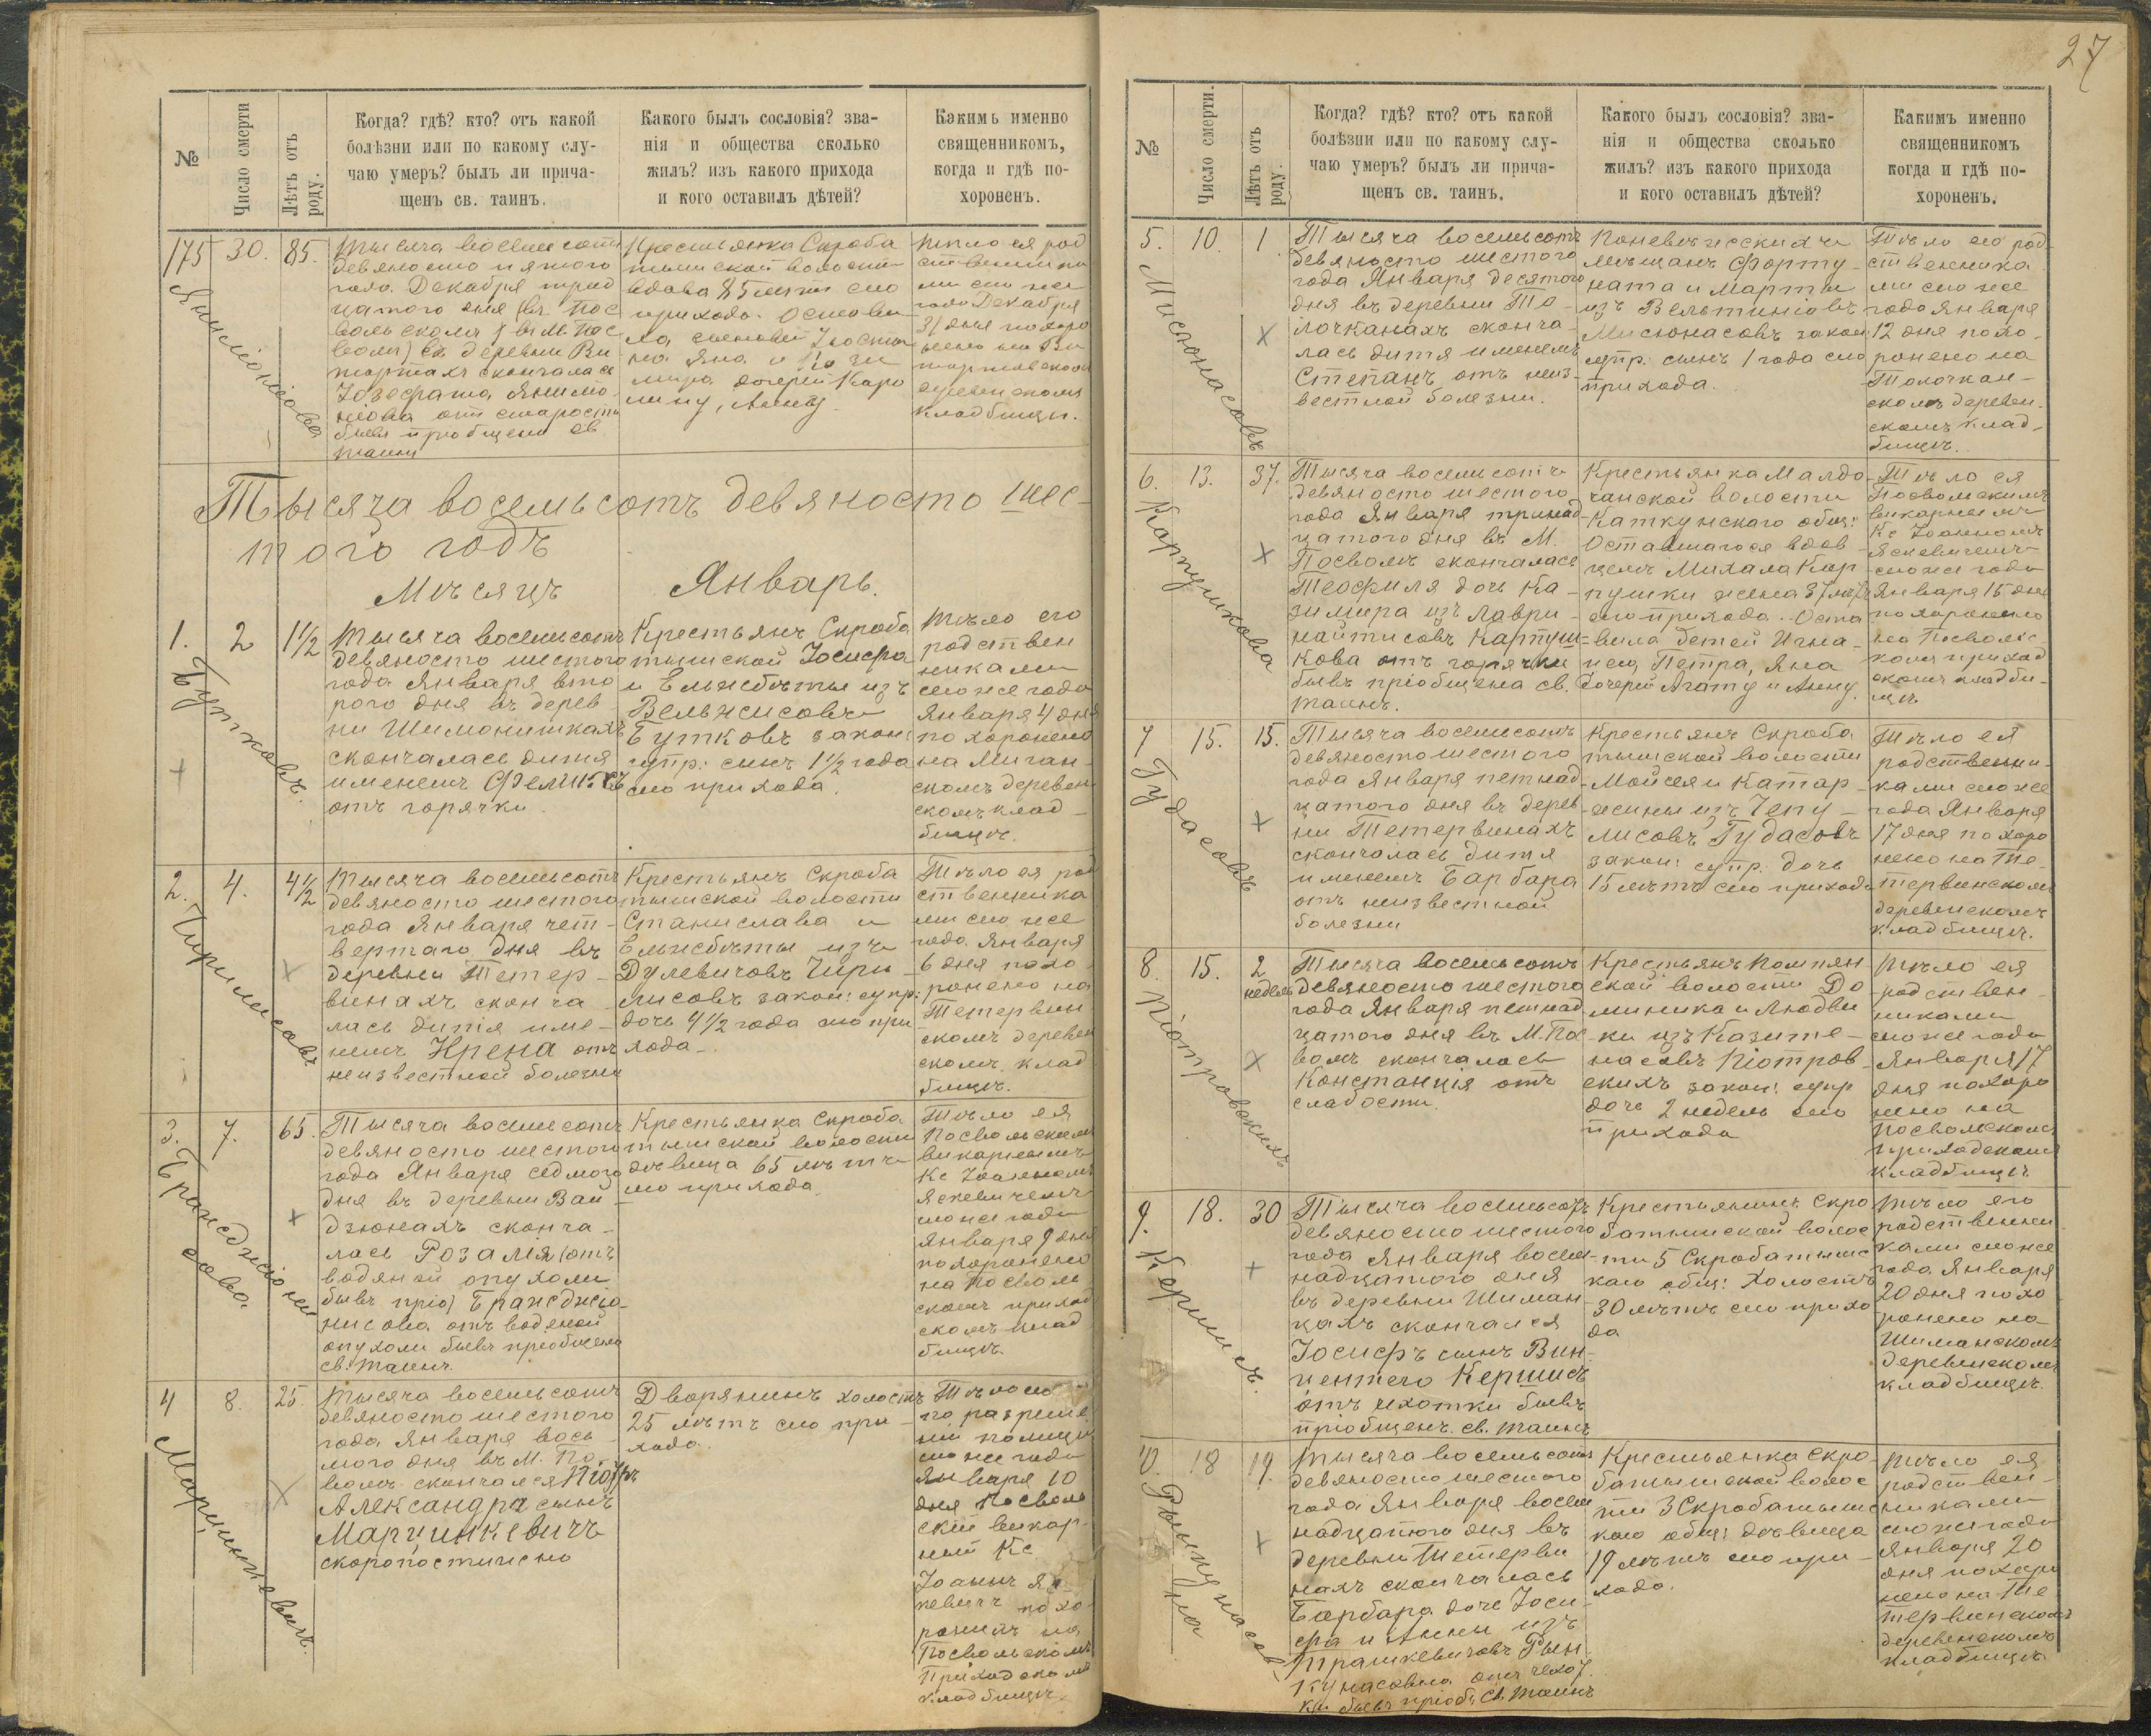 №
Число смерти
Лѣтъ отъ роду.
Когда? гдѣ? кто? отъ какой
болѣзни или по какому слу-
чаю умеръ? былъ ли прича-
щенъ св. таинъ.
Какого былъ сословія? зва-
нія и общества сколько
жилъ? изъ какого прихода
и кого оставилъ дѣтей?
Какимъ именно
священникомъ,
когда и гдѣ по-
хороненъ.
175
30.
85.
Тысяча восемьсотъ
девяносто пятого
года Декабря трид
цатого дня (въ Пос
вольскомъ) въ М. Пос
воли) въ деревни Ви
тортахъ скончалась
Іозефата
от старости
бывъ пріобщена св
таинъ
Крестьянка Скроба
тышской волости
вдова 85 летъ сью
прихода. Остави
ла сыновей Іости
на Яна и Ка зи
мира дочерей Каро
лину, Анну
Тѣло ея род
ственни ка
ми сью же
года Декабря
31 дня похоро
нено на Ви
тортовском
деревенскомъ
кладбищи.
Тысяца восемьсотъ девяносто шес-
того годъ
Мѣсяцъ Январь.
1.
2
1 1/2
Бутковъ.
Тысяча восемьсотъ
девяносто шестого
года Января вто
рого дня въ дерев
ни Шимонишкахъ
скончалась дитя
именемъ Феликсъ
отъ горячки
Крестьянъ Скроба
тышской Іосифа
и Ельжбѣты изъ
Вельжисовъ
Бутковъ закон:
супр: сынъ 1 1/2 года
сью прихода.
Тѣло его
родствен
никами
сьюже года
Января 4 дня
похоронено
на Миган-
скомъ деревен
скомъ клад
бищѣ.
2.
4.
4 1/2
Чирлисовъ
Тысяча восемьсотъ
девяносто шестого
года Января чет-
вертаго дня въ
деревни Тетер-
винахъ сконча
лась дитя име-
немъ Ирена отъ
неизвестной болезни
Крестьянъ Скроба
тышской волости
Станислава и
Ельжбѣты изъ
Дулевичовъ Чири-
лисовъ закон: супр:
дочь 4 1/2 года сью при
хода.
Тѣло ея род
ственника
ми сью же
года Января
6 дня похо
ронено на
Тетервин
скомъ деревен
скомъ клад
бищѣ.
3.
7.
65.
Тысяча восемьсотъ
девяносто шестого
года Января седмого
дня въ деревни Вай-
дзюнахъ сконча-
лась Розалія (отъ
водяной опухоли
бывъ пріо) Бранджіо-
нисова отъ водяной
опухоли бывъ пріобщена
св. таинъ.
Крестьянка Скроба
тышской волости
дѣвица 65 лѣтъ
сью прихода.
Тѣло ея
Посвольскимъ
викарнымъ
Кс Іоанномъ
Яскевичемъ
сьюже года
Января 9 дня
похоронено
на Посволь
скомъ приход
скомъ клад
бищѣ.
4
8.
25.
Марцинкевичъ.
Тысяча восемьсотъ
девяносто шестого
года Января вось
мого дня въ М. По
воли скончался Піотръ
Александра сынъ
Марцинкевичъ
скоропостижно
Дворянинъ холостъ
25 лѣтъ сью при-
хода.
Тѣло его
по разреше
ніи полиціи
сьюже года
Января 10
дня Посволь
скій викар-
ный Кс.
Іоаннъ Яс
кевичъ похо
ронилъ на
Посвольскомъ
Приходскомъ
кладбищѣ.
27
№
Число смерти.
Лѣтъ отъ роду.
Когда? гдѣ? кто? отъ какой
болѣзни или по какому слу-
чаю умеръ? былъ ли прича-
щенъ св. таинъ.
Какого былъ сословія? зва-
нія и общества сколько
жилъ? изъ какого прихода
и кого оставилъ дѣтей?
Какимъ именно
священникомъ
когда и гдѣ по-
хороненъ.
5.
10.
1.
Мисюнасовъ
Тысяча восемьсотъ
девяносто шестого
года Января десятого
дня въ деревни То-
лочканахъ сконча-
лась дитя именемъ
Степанъ отъ неиз-
вестной болезни.
Поневѣжескихъ
мѣщанъ Форту-
ната и Марты
изъ Вельтиніовъ
Мисюнасовъ закон:
супр: сынъ 1 года сью
прихода.
Тѣло его род-
ственника
ми сью же
года Января
12 дня похо-
ронено на
Толочкан-
скомъ деревен-
скомъ клад-
бищѣ.
6.
13.
37.
Картушкова
Тысяча восемьсотъ
девяносто шестого
года Января тринад
цатого дня въ М.
Посволѣ скончалась
Теофиля дочь Ка-
зимира изъ Лаври-
найтисовъ Картуш-
кова отъ горячки
бывъ пріобщена св.
таинъ.
Крестьянка Малдо-
чанской волости
Каткунскаго общ:
Оставшагося вдов-
цемъ Михала Кар-
пушки жена 37 летъ
сью прихода. Оста
вила детей Игна-
цея, Петра, Яна
дочерей Агату и Анну.
Тѣло ея
Посвольскимъ
викарнымъ
Кс Іоанномъ
Яскевичемъ
сьюже года
Января 15 дня
похоронено
на Посволь-
скомъ приход
скомъ кладби-
щѣ
7
15.
15.
Гудасовъ
Тысяча восемьсотъ
девяносто шестого
года Января петнад
цатого дня въ дерев
ни Тетервинахъ
скончалась дитя
именемъ Барбара
отъ неизвестной
болезни
Крестьянъ Скроба
тышской волости
Мойсея и Катар-
жины изъ Чепу-
лисовъ Гудасовъ
закон: супр: дочь
15 лѣтъ сью прихода
Тѣло ея
родственни-
ками сьюже
года Января
17 дня похоро
нено на Те-
тервинскомъ
деревенскомъ
кладбищѣ.
8.
15.
2
недель
Піотровскихъ
Тысяча восемьсотъ
девяносто шестого
года Января петнад
цатого дня въ М. Пос
волѣ скончалась
Констанція отъ
слабости.
Крестьянъ Помпян
ской волости До
миника и Людви
ки изъ Казите-
насовъ Піотров
скихъ закон: супр
дочь 2 недель сью
прихода
Тѣло ея
родствен
никами
сьюже года
Января 17
дня похоро
нено на
Посвольскомъ
приходскомъ
кладбищѣ
9.
18.
30
Кершисъ.
Тысяча восемьсотъ
девяносто шестого
года Января восем-
надцатого дня
въ деревни Шиман
цахъ скончался
Іосифъ сынъ Вин-
центего Кершисъ
отъ чхотки бывъ
пріобщенъ св. таинъ
Крестьянинъ Скро
батышской волос
ти 5 Скробатышс
каго общ: холостъ
30 лѣтъ сью прихо
да
Тѣло его
родственни
ками сьюже
года Января
20 дня похо
ронено на
Шиманскомъ
деревенскомъ
кладбищѣ.
10.
18
19.
Тысяча восемьсотъ
девяносто шестого
года Января восем
надцатого дня въ
деревни Тетерви
нахъ скончалась
Барбара дочь Іоси-
фа и Анны изъ
Трашкевичовъ Рын-
кунасовна отъ чехот
ки бывъ пріоб: св. таинъ
Крестьянка Скро-
батышской волос
ти 3 Скробатышс
каго общ: дѣвица
19 лѣтъ сью при-
хода.
Тѣло ея
родствен-
никами
сьюже года
Января 20
дня похоро
нено на Те
тервинскомъ
деревенскомъ
кладбищѣ